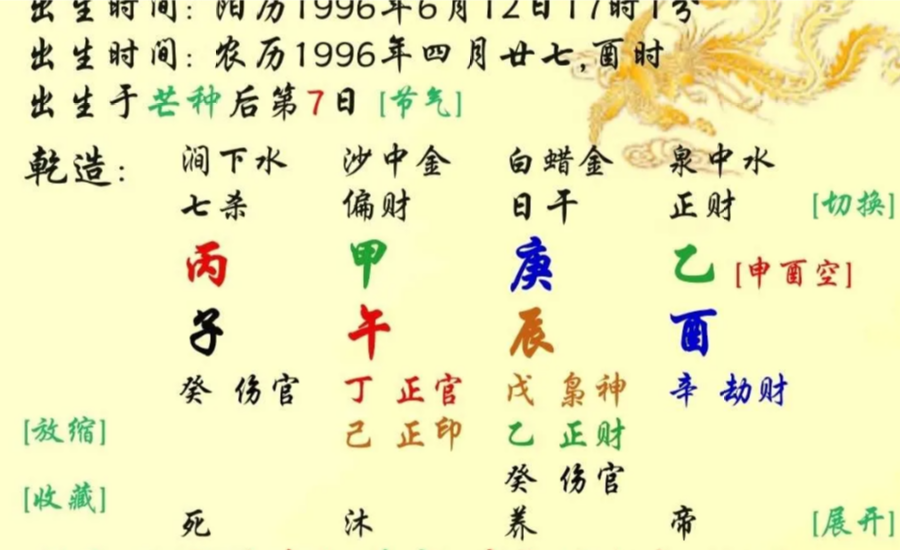 出生时间: 阳历1996年6月12日17时1分
出生时间: 农历1996年四月廿七,酉时
出生于芒种后第7日 [节气]
乾造: 涧下水 沙中金 白蜡金 泉中水
七杀 偏财 日干 正财 [切换]
丙 甲 庚 乙 [申酉空]
子 午 辰 酉
癸 伤官 丁 正官 戊 枭神 辛 劫财
[放缩] 己 正印 乙 正财
癸 伤官
[收藏]
死 沐 养 帝 [展开]